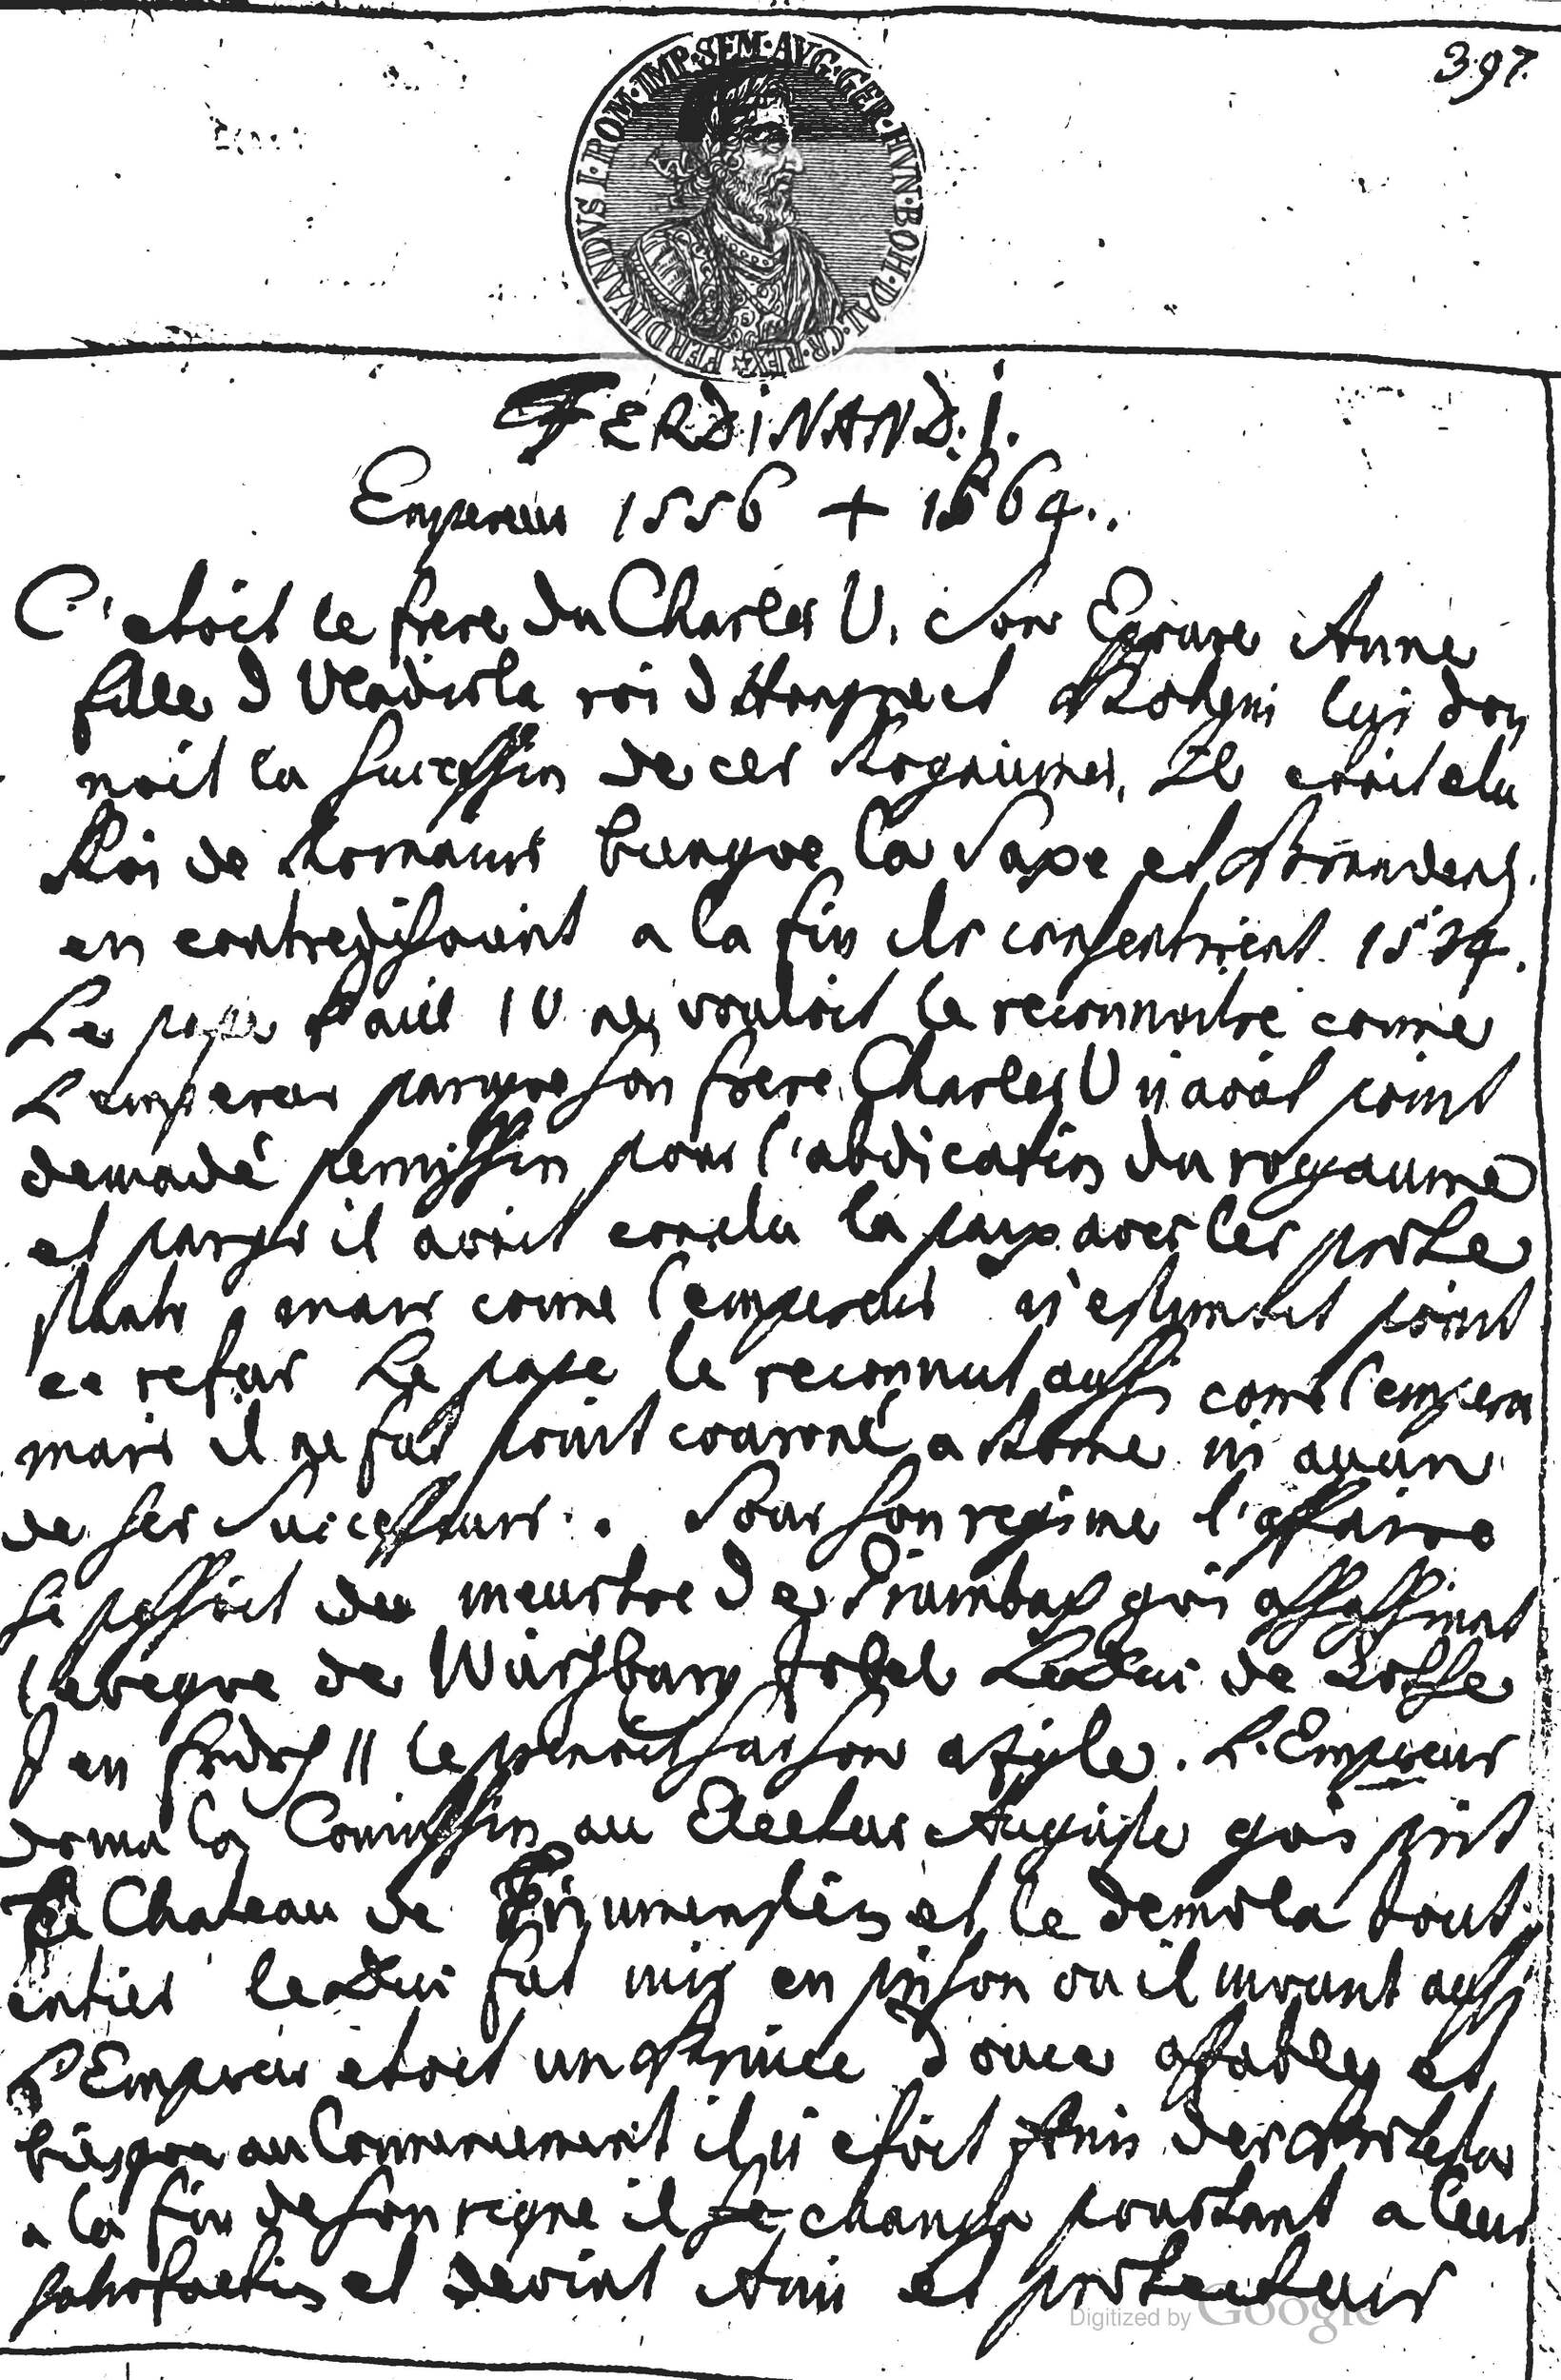 397.
FERDINANDVS I·ROM·IMP·SEM·AVG·GER·HVN·BOH·DAL·CR·REX
FERDINAND. I.
Empereur 1556 + 1564..
C'etoit le frere du Charles V. Son Epouse Anne
fille d Vladisla roi d Hongrie et lui don
noit la sucession de ces Royaumes, Il etoit elu
Roi de Romains la Saxe et Brandenb.
en contredisoient a la fin ils consentirent 1534.
Le pape Paul IV ne vouloit le reconnoitre come
L'empereur parque son frere Charles V n avoit point
demadé permission pour l'abdication du royaume
et parqe il avoit conclu la paix avec les prote
stants, mais come l'empereur n'estimoit point
ce refus Le pape le reconnut aussi come l'empereu
mais il ne fut point couroné a Rome ni aucun
de ses Successeurs.. Sous son regime l'affaire
se passoit du meurtre de qui assassinat
l'eveque de Würzburg Le Duc de
Jean Fridr II le prenoit sous son azyle. L'Empereur
donna la Comission au Electeur Auguste qui prit
Le Chateau de et le demola tout
entier le Duc fut mis en prison ou il mourut aussi
L'Empereur etoit un Prince douce affable et
au Commencement il n etoit Amis des Protestan
a la fin de son regne il se changea pourtant a leur
satisfaction et devint Ami et protecteur
Digitized by Google